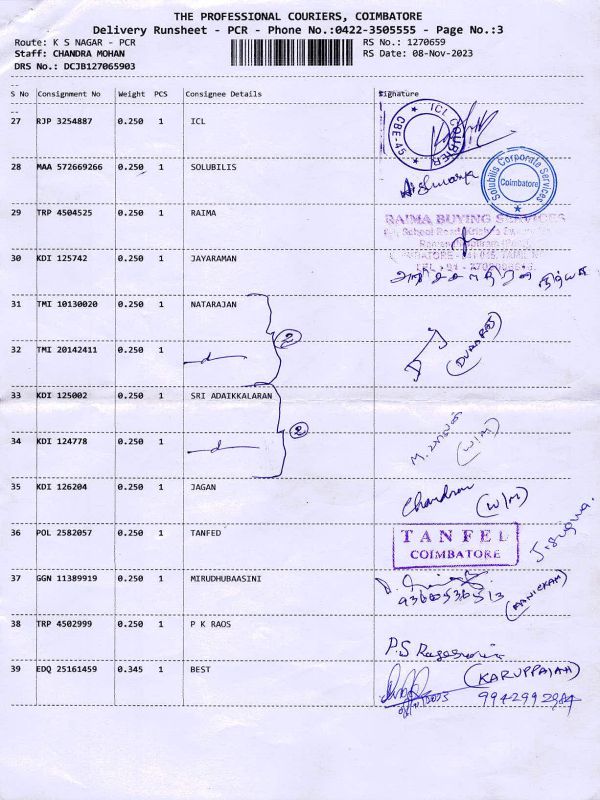 THE PROFESSIONAL COURIERS, COIMBATORE
Delivery Runsheet - PCR - Phone No.:0422-3505555 - Page No.:3
Route: K S NAGAR - PCR RS No.: 1270659
Staff: CHANDRA MOHAN RS Date: 08-Nov-2023
DRS No.: DCJB127065903
S No Consignment No Weight PCS Consignee Details Signature
27 RJP 3254887 0.250 1 ICL
ICL COURIER CBE-45
28 MAA 572669266 0.250 1 SOLUBILIS
Aishwarya
Solubilis Corporate Services Coimbatore
29 TRP 4504525 0.250 1 RAIMA
RAIMA BUYING SERVICES
30 KDI 125742 0.250 1 JAYARAMAN
31 TMI 10130020 0.250 1 NATARAJAN
2
32 TMI 20142411 0.250 1 d
(DURAI RAJ)
33 KDI 125002 0.250 1 SRI ADAIKKALARAN
2
34 KDI 124778 0.250 1 d
(W/M)
35 KDI 126204 0.250 1 JAGAN
Chandran (W/M)
36 POL 2582057 0.250 1 TANFED
TANFED
COIMBATORE
J. Suguna.
37 GGN 11389919 0.250 1 MIRUDHUBAASINI
9360536513
(MANICKAM)
38 TRP 4502999 0.250 1 P K RAOS
P.S Rageswari
39 EDQ 25161459 0.345 1 BEST
(KARUPPAIAH)
9942992984